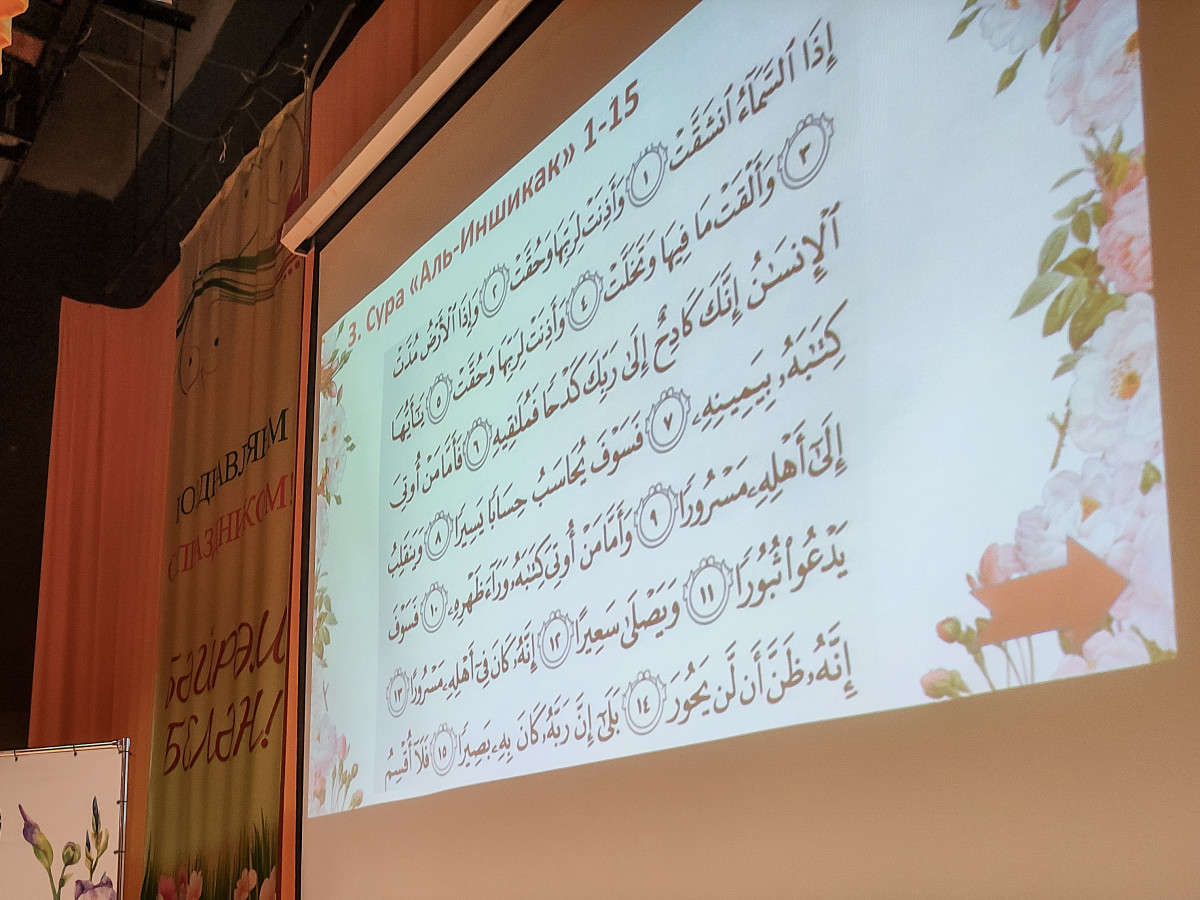 3. Сура «Аль-Иншикак» 1-15
إِذَا ٱلسَّمَآءُ ٱنشَقَّتْ ١ وَأَذِنَتْ لِرَبِّهَا وَحُقَّتْ ٢ وَإِذَا ٱلْأَرْضُ مُدَّتْ
٣ وَأَلْقَتْ مَا فِيهَا وَتَخَلَّتْ ٤ وَأَذِنَتْ لِرَبِّهَا وَحُقَّتْ ٥ يَـٰٓأَيُّهَا
ٱلْإِنسَـٰنُ إِنَّكَ كَادِحٌ إِلَىٰ رَبِّكَ كَدْحًا فَمُلَـٰقِيهِ ٦ فَأَمَّا مَنْ أُوتِىَ
كِتَـٰبَهُۥ بِيَمِينِهِۦ ٧ فَسَوْفَ يُحَاسَبُ حِسَابًا يَسِيرًا ٨ وَيَنقَلِبُ
إِلَىٰٓ أَهْلِهِۦ مَسْرُورًا ٩ وَأَمَّا مَنْ أُوتِىَ كِتَـٰبَهُۥ وَرَآءَ ظَهْرِهِۦ ١٠ فَسَوْفَ
يَدْعُوا۟ ثُبُورًا ١١ وَيَصْلَىٰ سَعِيرًا ١٢ إِنَّهُۥ كَانَ فِىٓ أَهْلِهِۦ مَسْرُورًا ١٣
إِنَّهُۥ ظَنَّ أَن لَّن يَحُورَ ١٤ بَلَىٰٓ إِنَّ رَبَّهُۥ كَانَ بِهِۦ بَصِيرًا ١٥ فَلَآ أُقْسِمُ
ПОЗДРАВЛЯЕМ
С ПРАЗДНИКОМ!
Бәйрәм
белән!